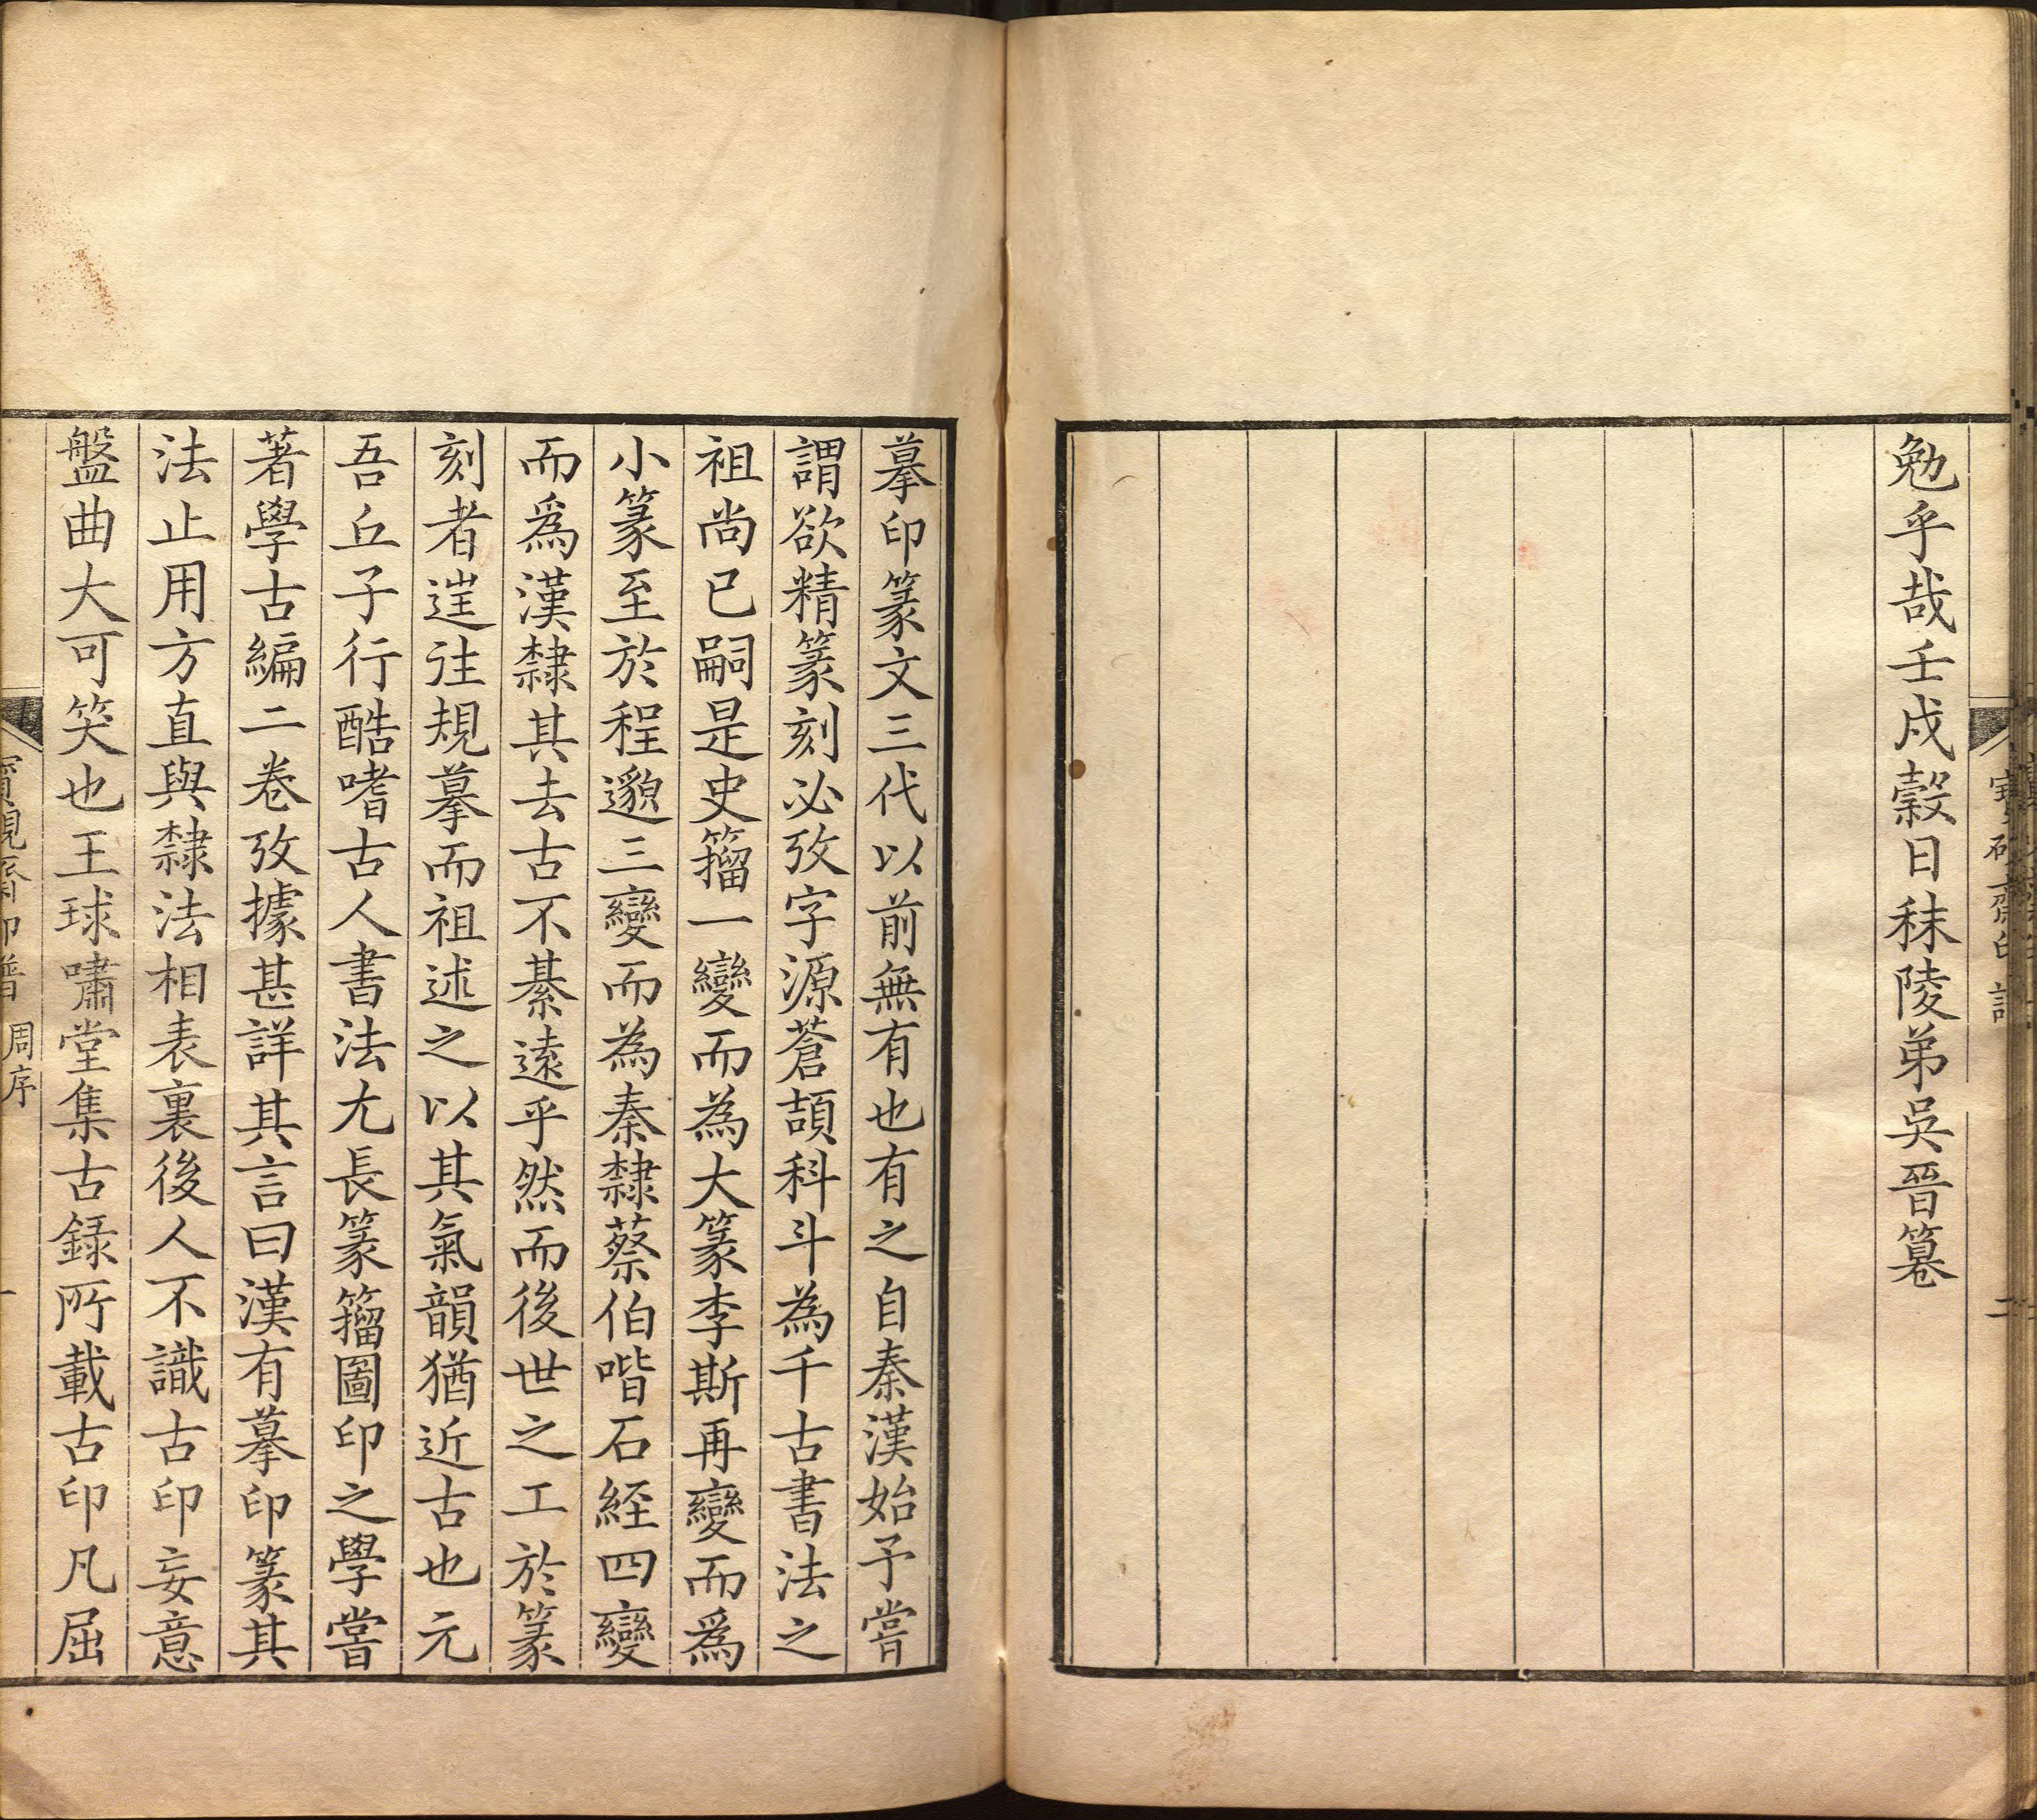 勉乎哉壬戌穀日秣陵弟吳晉篹
二
摹印篆文三代以前無有也有之自秦漢始予嘗
謂欲精篆刻必攷字源蒼頡科斗為千古書法之
祖尚已嗣是史籀一變而為大篆李斯再變而爲
小篆至於程邈三變而為秦隸蔡伯喈石經四變
而爲漢隸其去古不綦遠乎然而後世之工於篆
刻者逞徃規摹而祖述之以其氣韻猶近古也元
吾丘子行酷嗜古人書法尤長篆籀圖印之學嘗
著學古編二卷攷據甚詳其言曰漢有摹印篆其
法止用方直與隸法相表裏後人不識古印妄意
盤曲大可笑也王球嘯堂集古錄所載古印凡屈
印譜 周序